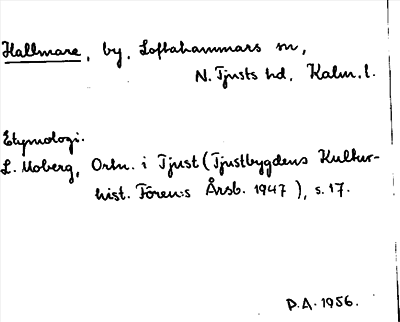 Hallmare, by, Loftahammars sn,
N. Tjusts hd, Kalm. l.
Etymologi.
L. Moberg, Ortn. i Tjust (Tjustbygdens Kultur-
hist. Fören:s Årsb. 1947), s. 17.
P.A. 1956.